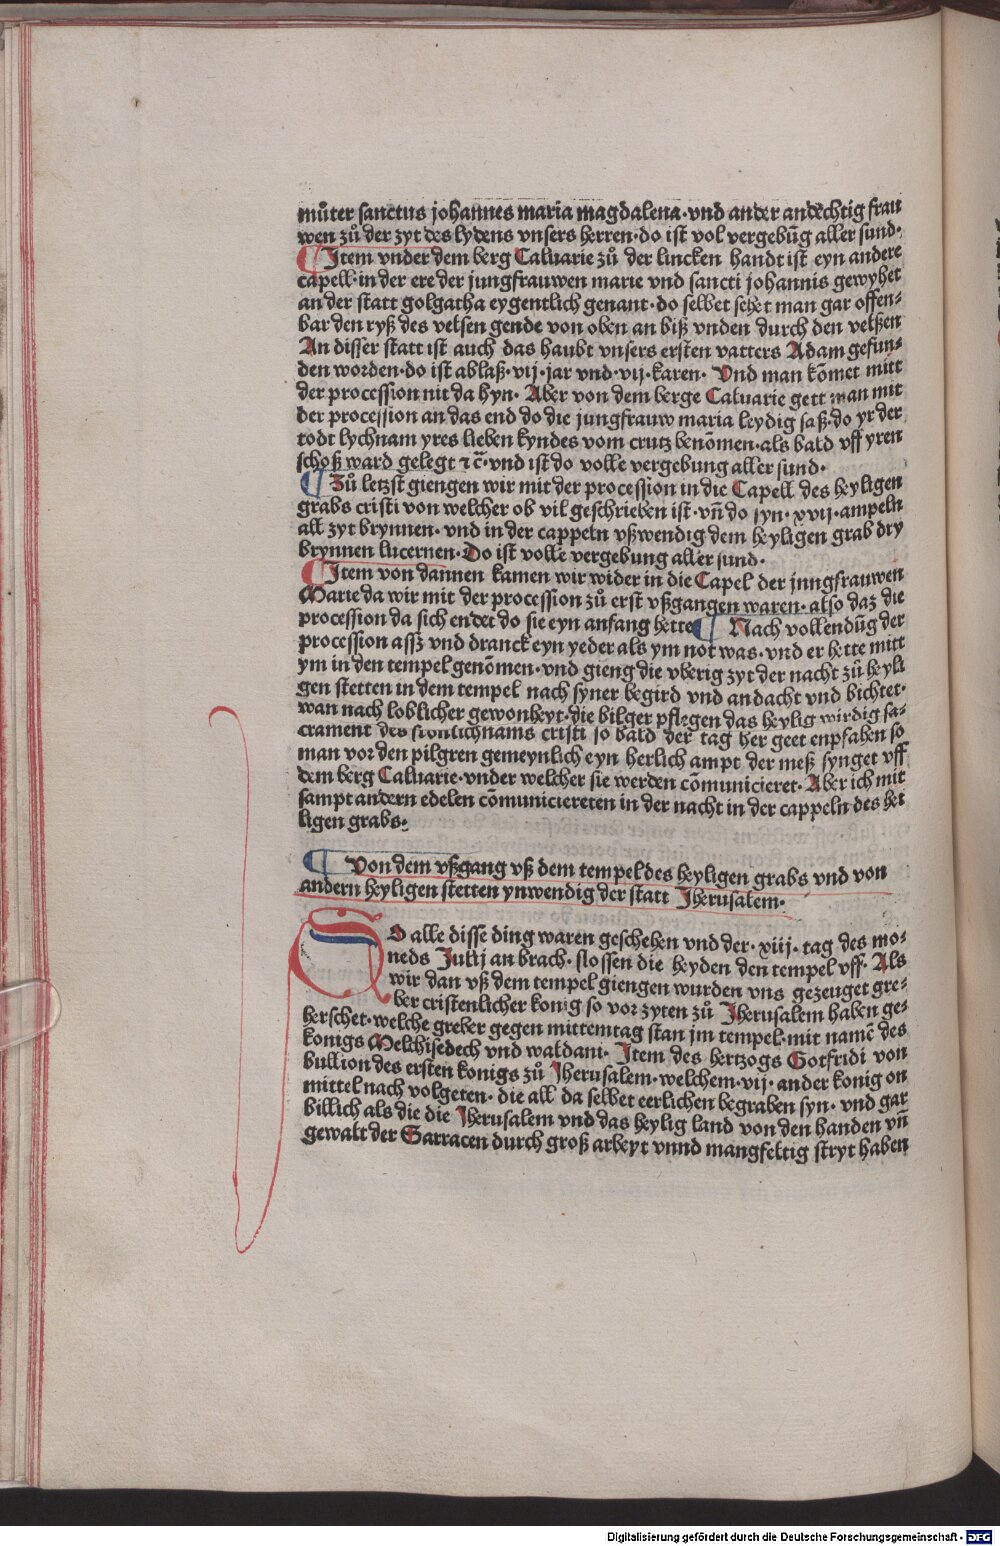 můter sanctus johannes maria magdalena· vnd ander andechtig frau
wen zů der zyt des lydens vnsers herren· do ist vol vergebūg aller sund·
Item vnder dem berg Caluarie zů der lincken handt ist eyn andere
capell· in der ere der jungfrauwen marie vnd sancti johannis gewyhet
an der statt golgatha eygentlich genant· do selbet sehet man gar offen-
bar den ryß des velsen gende von oben an biß vnden durch den velßen
An disser statt ist auch das haubt vnsers ersten vatters Adam gefun-
den worden· do ist ablaß· vij· jar vnd· vij· karen· Vnd man kōmet mitt
der procession nit da hyn· Aber von dem berge Caluarie gett man mit
der procession an das end do die jungfrauw maria leydig saß· do yr der
todt lychnam yres lieben kyndes vom crutz benōmen· als bald vff yren
schoß ward gelegt ⁊ c̄· vnd ist do volle vergebung aller sund·
Zů letzst giengen wir mit der procession in die Capell des heyligen
grabs cristi von welcher ob vil geschrieben ist· vn̄ do syn· xvij· ampeln
all zyt brynnen· vnd in der cappeln vßwendig dem heyligen grab dry
brynnen lucernen· Do ist volle vergebung aller sund·
Item von dannen kamen wir wider in die Capel der jungfrauwen
Marie da wir mit der procession zů erst vßgangen waren· also daz die
procession da sich endet do sie eyn anfang hette Nach vollendūg der
procession assz vnd dranck eyn yeder als ym not was· vnd er hette mitt
ym in den tempel genōmen· vnd gieng die vberig zyt der nacht zů heyli
gen stetten in dem tempel nach syner begird vnd andacht vnd bichtet·
wan nach loblicher gewonheyt· die bilger pflegen das heylig wirdig sa-
crament des fronlichnams cristi so bald der tag her geet enpfahen so
man vor den pilgren gemeynlich eyn herlich ampt der meß synget vff
dem berg Caluarie· vnder welcher sie werden cōmunicieret· Aber ich mit
sampt andern edelen cōmuniciereten in der nacht in der cappeln des hei
ligen grabs·
Von dem vßgang vß dem tempel des heyligen grabs vnd von
andern heyligen stetten ynwendig der statt Jherusalem·
SO alle disse ding waren geschehen vnd der· xiij· tag des mo-
neds Julij an brach· slossen die heyden den tempel vff· Als
wir dan vß dem tempel giengen wurden vns gezeuget gre-
ber cristenlicher konig so vor zyten zů Jherusalem haben ge-
herschet· welche greber gegen mittemtag stan jm tempel· mit namē des
konigs Melchisedech vnd waldani· Item des hertzogs Gotfridi von
bullion des ersten konigs zů Jherusalem· welchem· vij· ander konig on
mittel nach volgeten· die all da selbet eerlichen begraben syn· vnd gar
billich als die die Jherusalem vnd das heylig land von den handen vn̄
gewalt der Sarracen durch groß arbeyt vnnd mangfeltig stryt haben
Digitalisierung gefördert durch die Deutsche Forschungsgemeinschaft - DFG